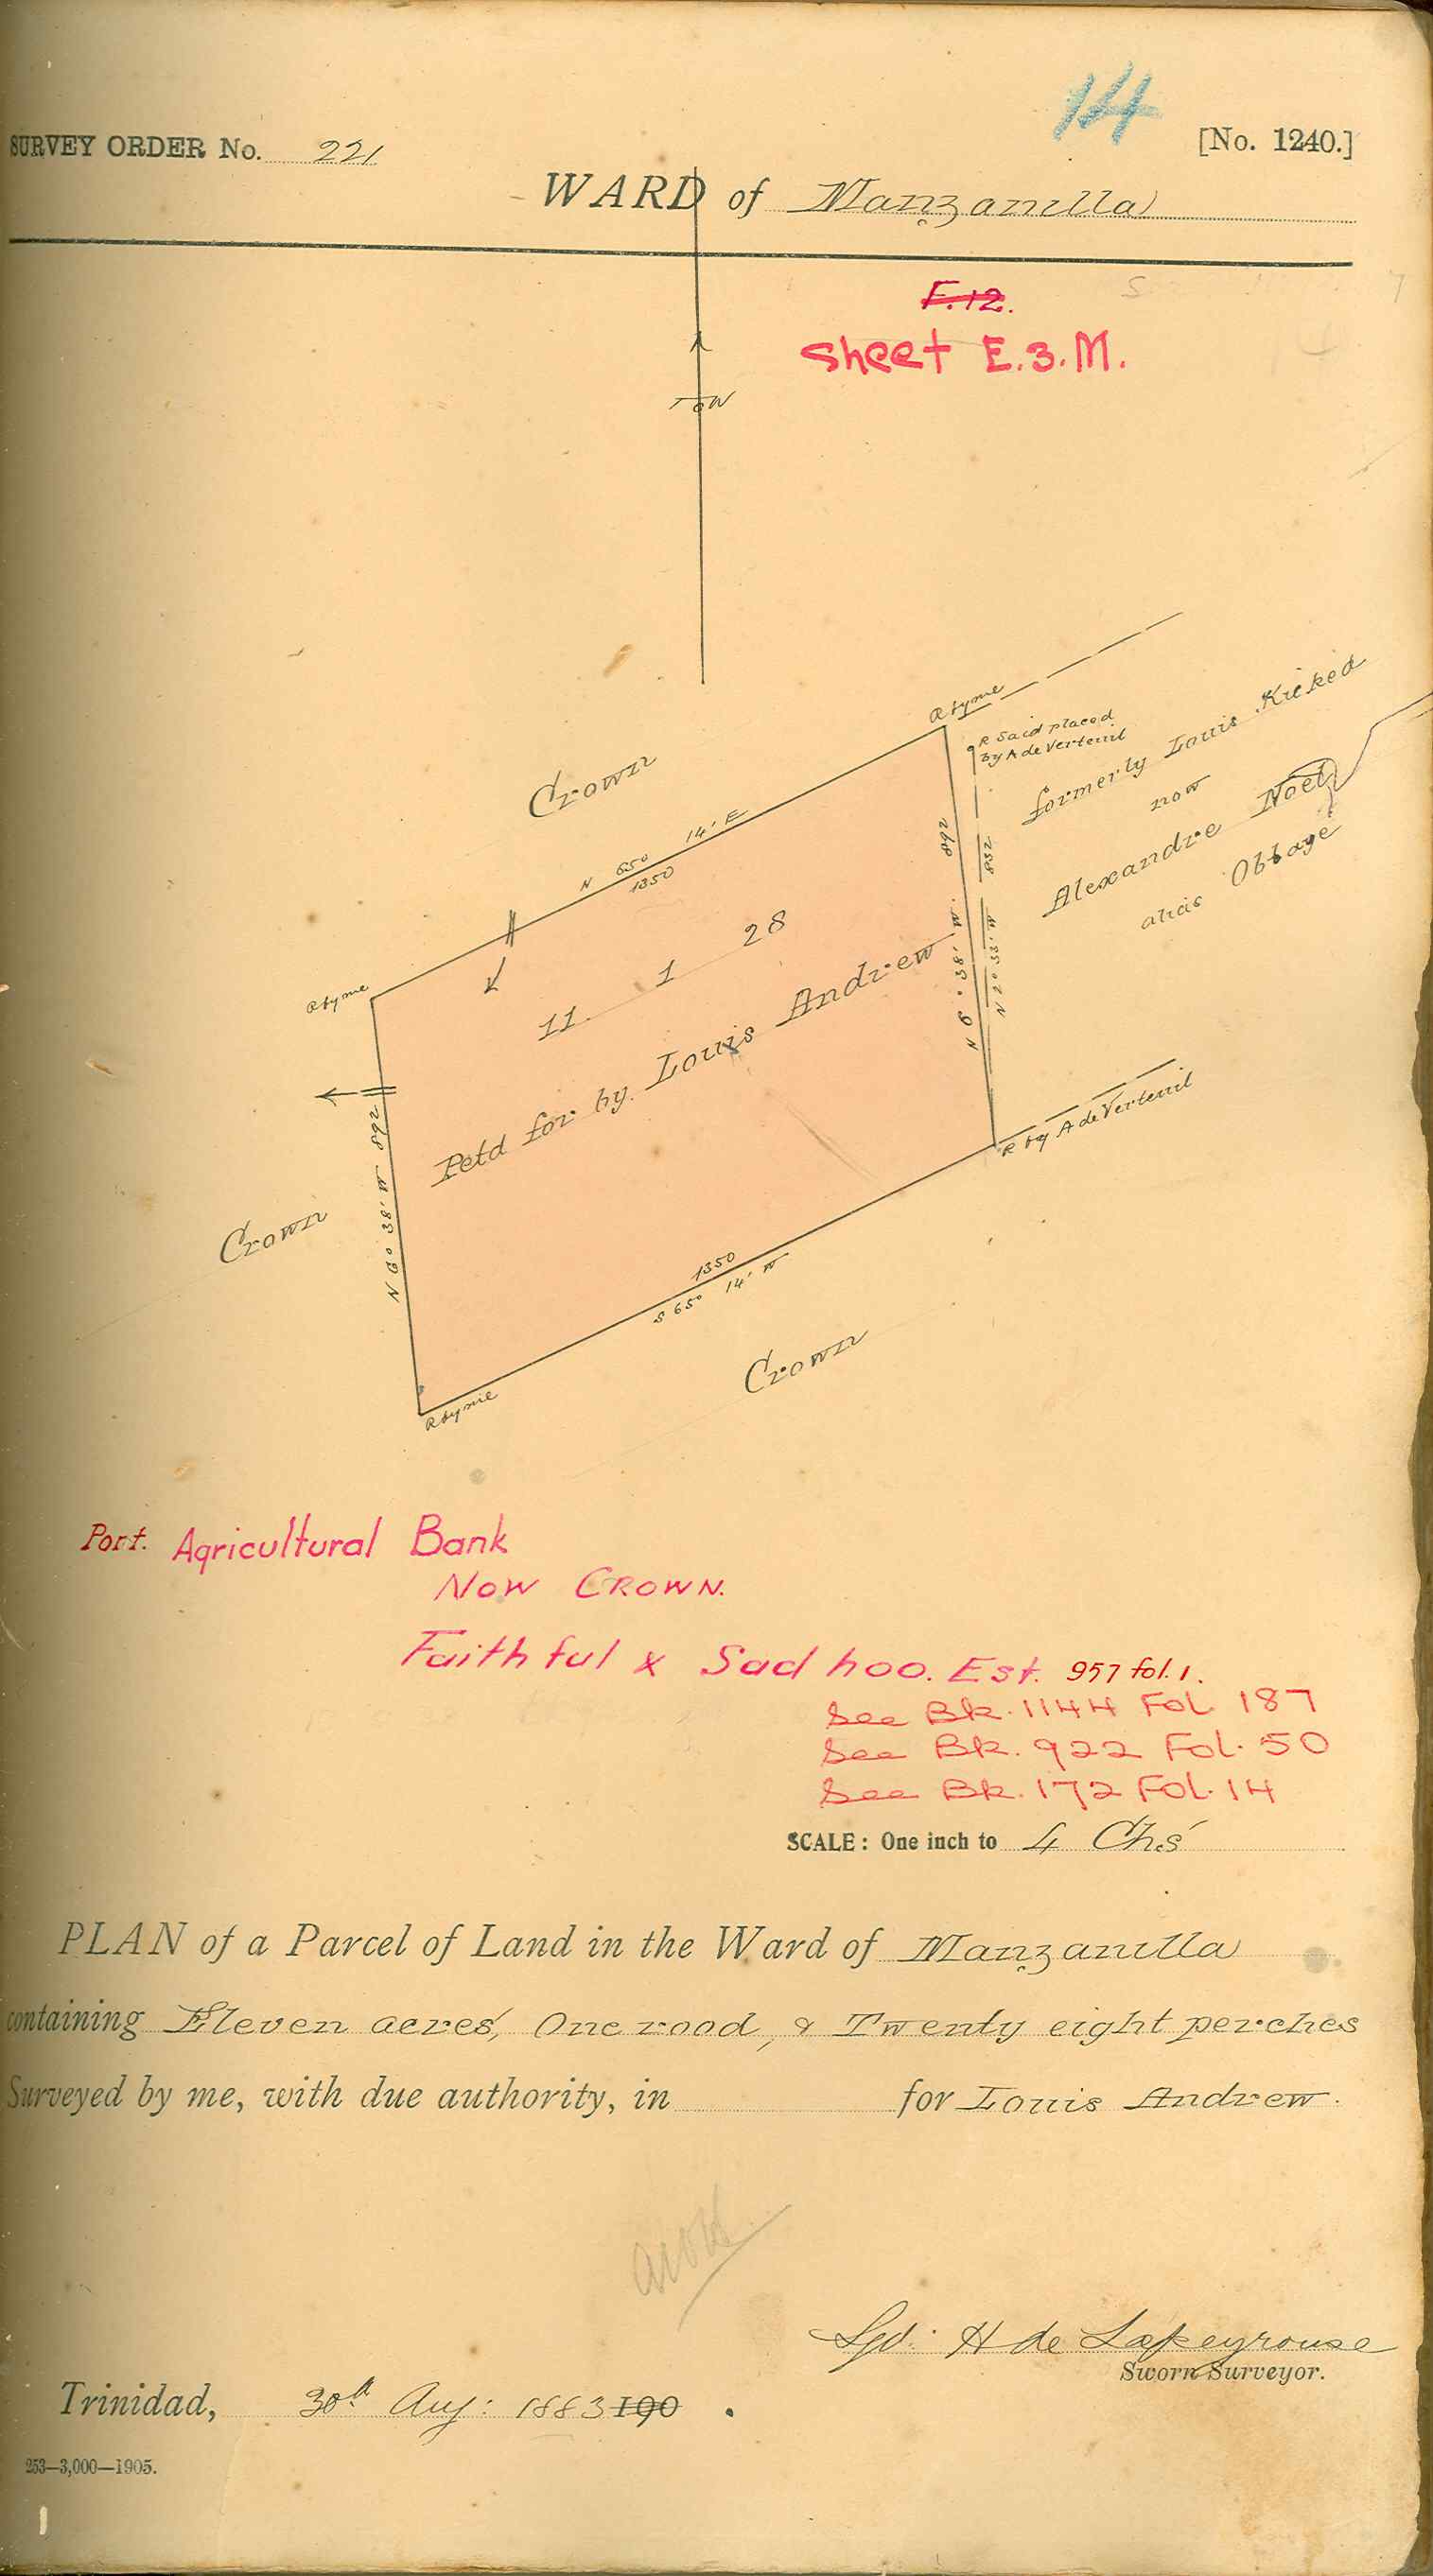 14
SURVEY ORDER No. 221
[No. 1240.]
WARD of Manzanilla
F.12.
Sheet E.3.M.
R by me
R Said placed
by A de Verteuil
formerly Louis Kicked
now
Alexandre Noel
alias Obbage
Crown
N 65° 14' E
1350
892
852
N 6° 38' W
N 2° 53' W
R by me
11 1 28
Petd for by Louis Andrew
N 6° 38' W 892
R by A de Verteuil
Crown
1350
S 65° 14' W
Crown
R by me
Port. Agricultural Bank
NOW CROWN.
Faithful & Sadhoo. Est. 957 fol. 1.
See Bk. 1144 Fol. 187
See Bk. 922 Fol. 50
See Bk. 172 Fol. 14
SCALE: One inch to 4 Chs
PLAN of a Parcel of Land in the Ward of Manzanilla
containing Eleven acres, One rood, & Twenty eight perches
Surveyed by me, with due authority, in for Louis Andrew.
Sgd: H de Lapeyrouse
Sworn Surveyor.
Trinidad, 30th Aug: 1883 190 .
253—3,000—1905.